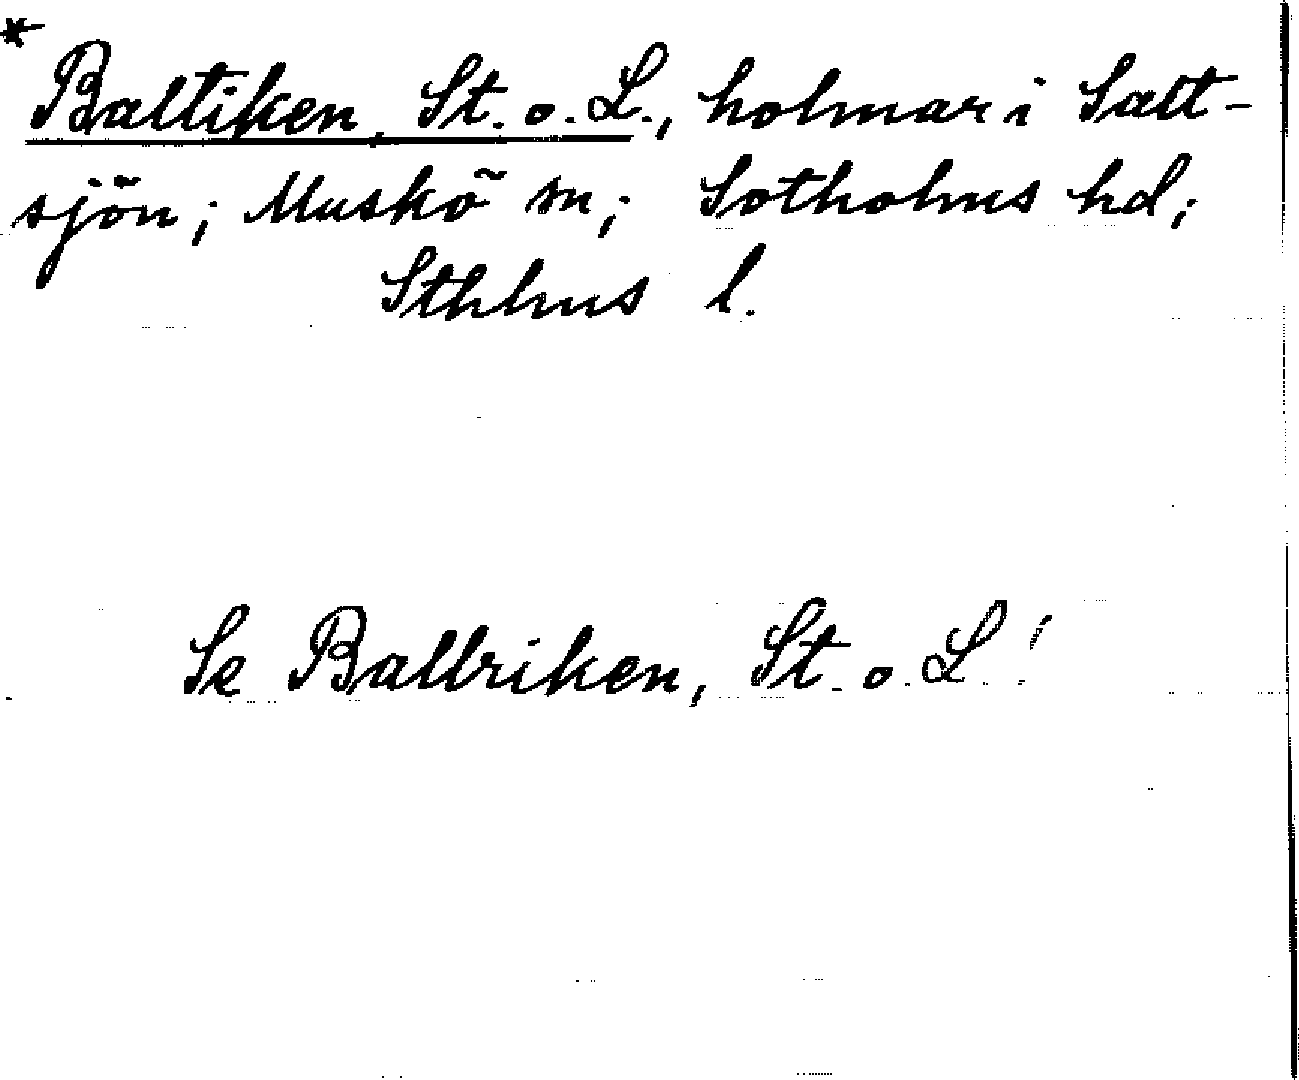 * Baltiken, St. o. L., holmar i Salt-
sjön; Muskö sn; Sotholms hd;
Sthlms l.
Se Ballriken, St. o. L!